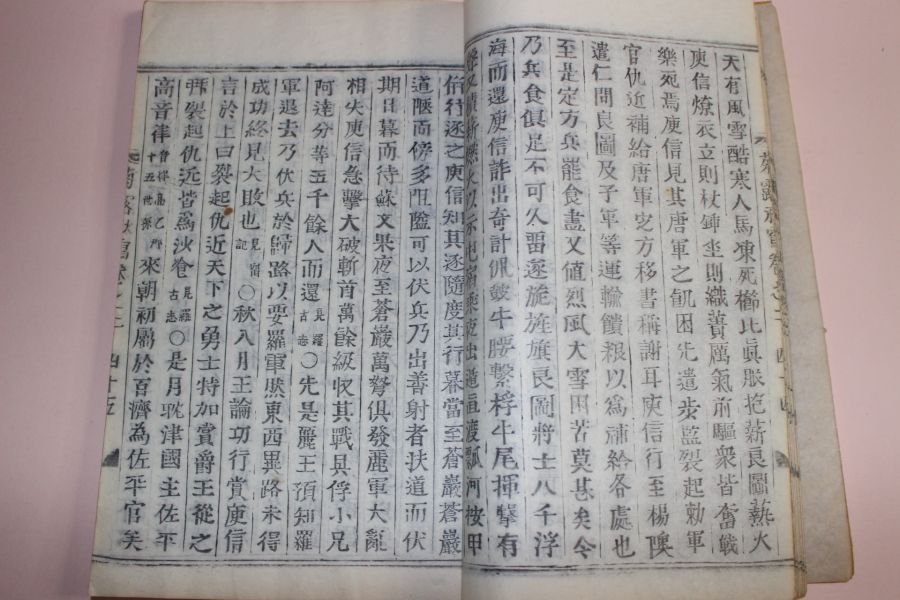 天有風雪酷寒人馬凍死櫛比眞服抱薪良圖爇火
庾信燎衣立則杖鍤坐則織蕢厲氣前驅衆皆奮戰
樂死焉庾信見其唐軍之飢困先遣步監裂起勑軍
官仇近補給唐軍定方移書稱謝耳庾信行至楊隩
遣仁問良圖及子軍等運輸饋粮以爲補給各處也
至是定方兵罷食盡又値烈風大雪困苦莫甚矣令
乃兵食俱是不可久留遂旋旌旗良圖將士八千浮
海而還庾信詐出奇計佩皷牛腰繫桴牛尾揮擊有
火以示屯宿乘夜出遁且渡瓢河按甲
伯行逐之庾信知其逐隨度其行暮當至蒼巖蒼巖
道陿而傍多阻隘可以伏兵乃出善射者扶道而伏
期日暮而待蘇文果夜至蒼巖萬弩俱發麗軍大亂
相失庾信急擊大破斬首萬餘級収其戰具俘小兄
阿達分等五千餘人而還見羅古志〇先是麗王預知羅
軍退去乃伏兵於歸路以要羅軍然東西異路未得
成功終見大敗也見甯記〇秋八月王論功行賞庾信
言於上曰裂起仇近天下之勇士特加賞爵王從之
裂起仇近皆爲沙飡見羅古志〇是月耽津國主佐平
高音律曾得高乙那十五世孫來朝初屬於百濟為佐平官矣
四十五